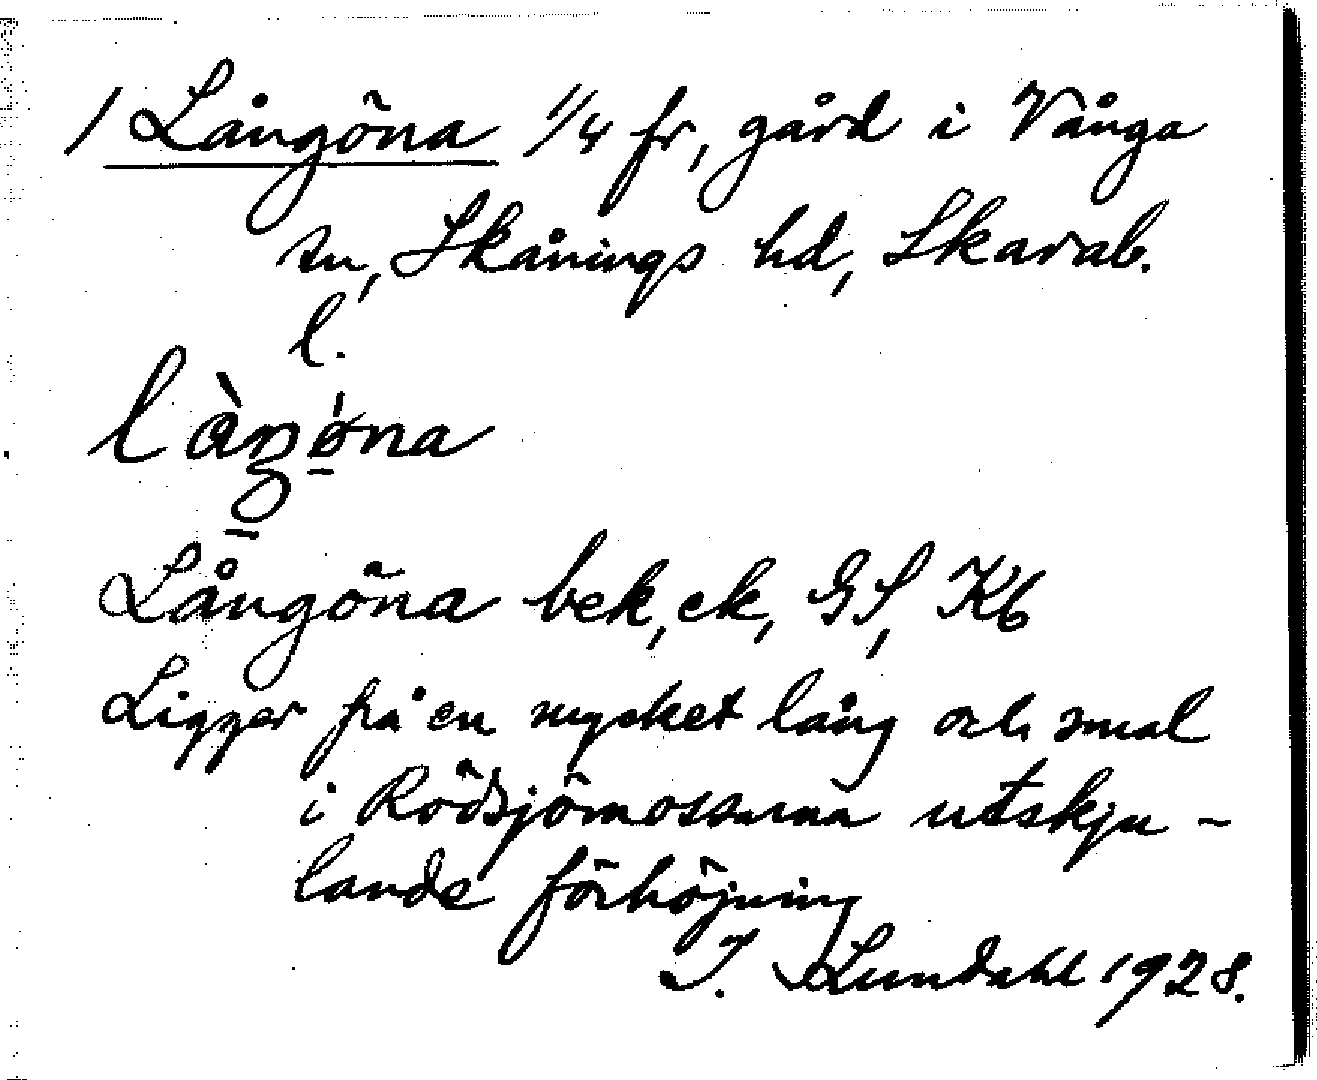 / Långöna 1/4 fr, gård i Vånga
sn, Skånings hd, Skarab.
l.
Långöna bek, ek, GS, Kb
Ligger på en mycket lång och smal
i Rödsjömossarna utskju-
tande förhöjning
I. Lundahl 1928.